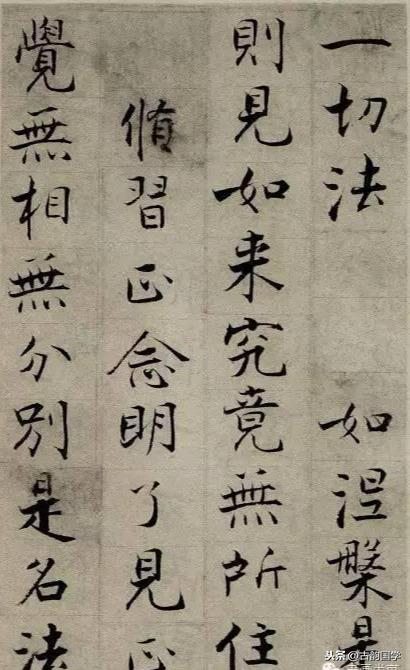 一切法 如涅槃是
則見如来究竟無所住
脩習正念明了見正
覺無相無分別是名法
头条 @古韵国学